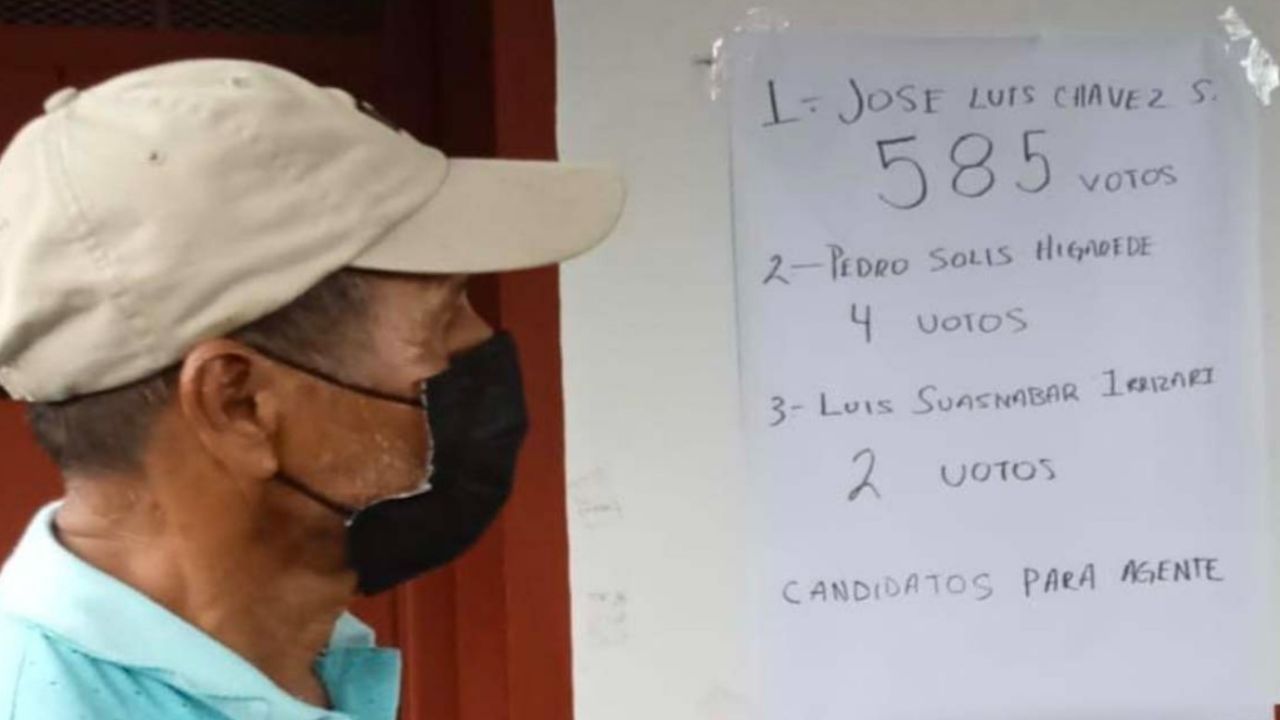 1- JOSE LUIS CHAVEZ S.
585 VOTOS
2- PEDRO SOLIS HIGAREDE
4 VOTOS
3- LUIS SUASNABAR IRRIZARI
2 VOTOS
CANDIDATOS PARA AGENTE